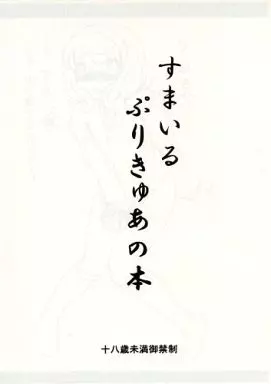 すまいる
ぷりきゅあの本
十八歳未満御禁制